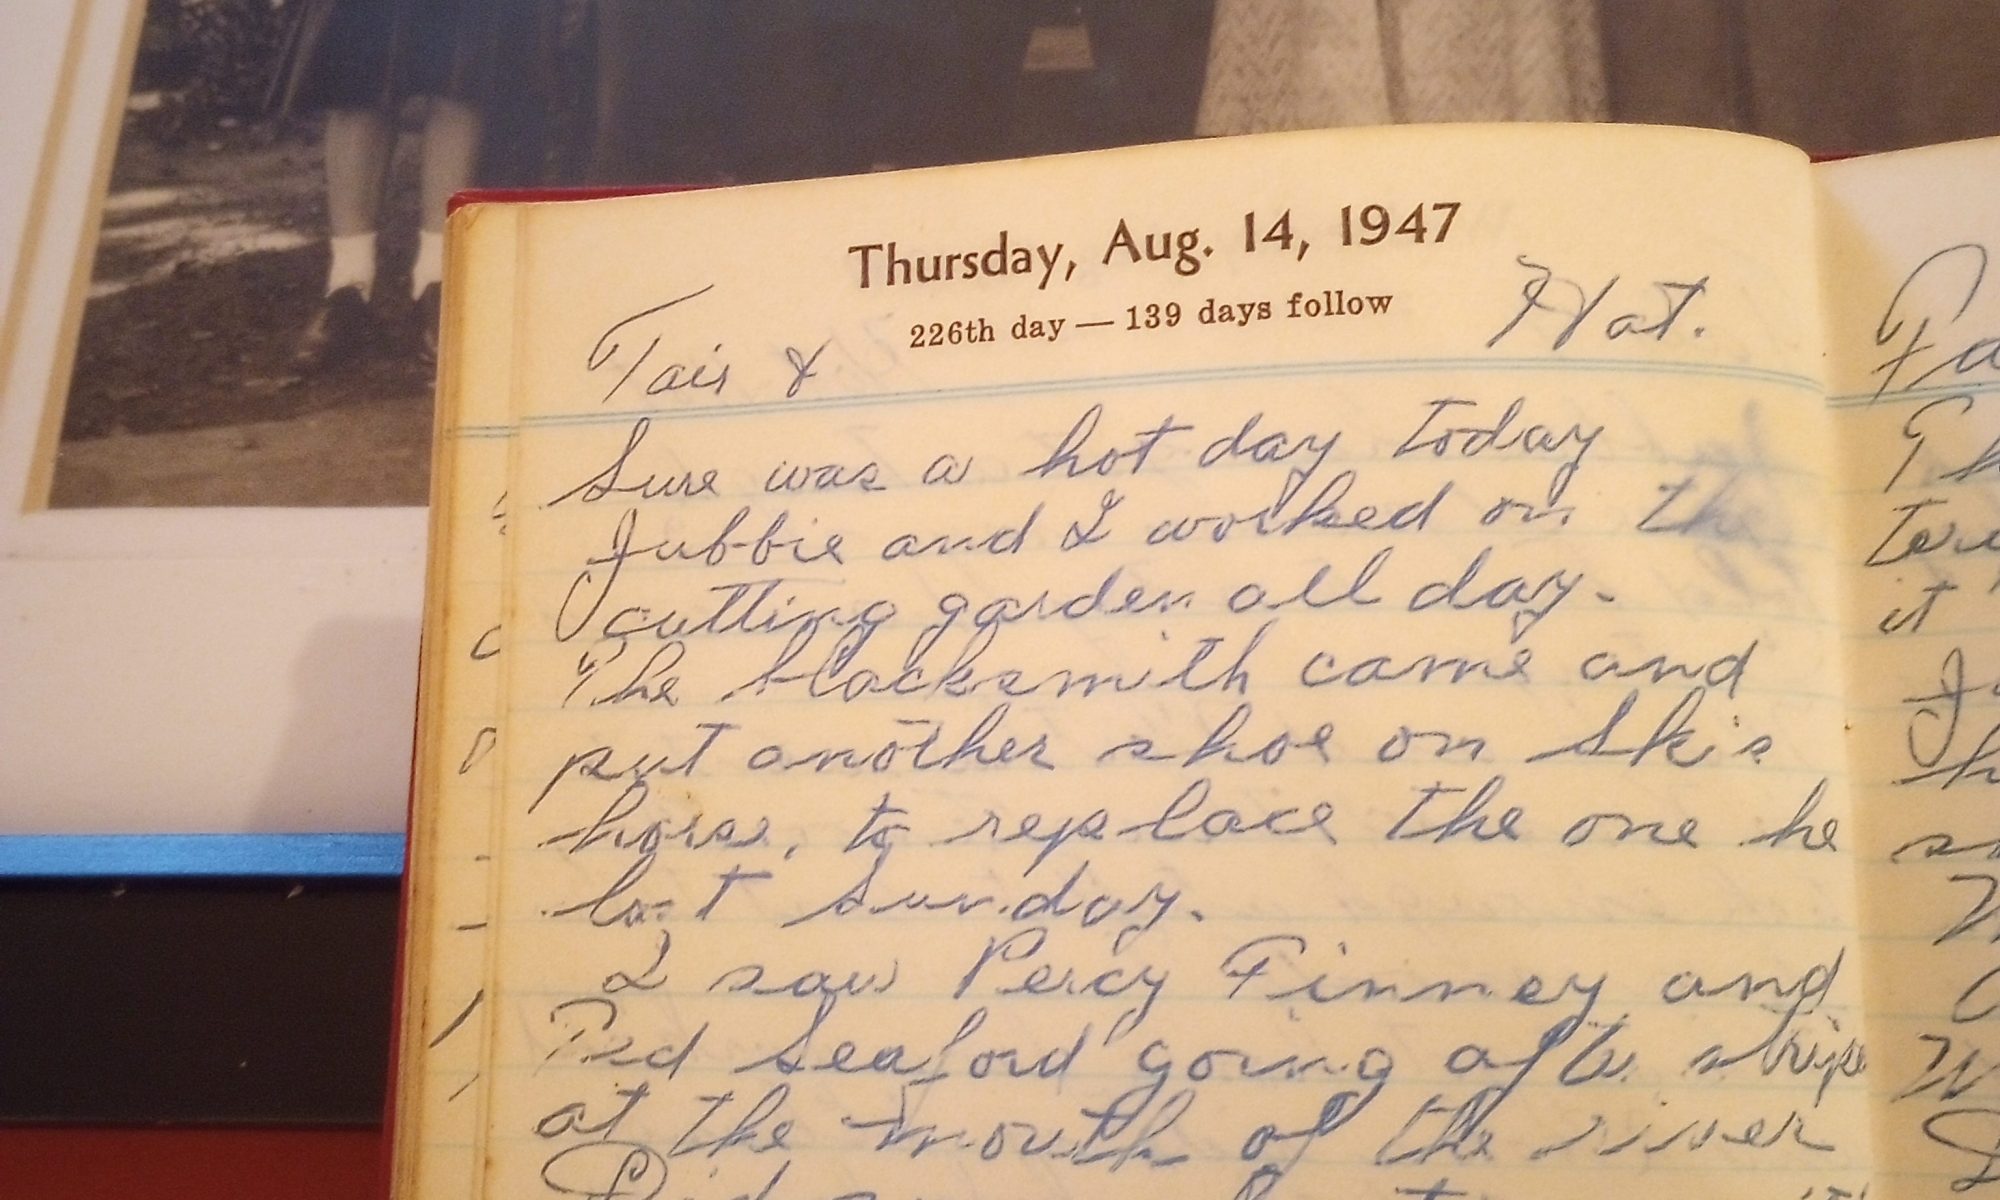 Thursday, Aug. 14, 1947
226th day — 139 days follow
Fair & Hot.
Sure was a hot day today
Jubbie and I worked on the
cutting garden all day.
The blacksmith came and
put another shoe on Ski's
horse, to replace the one he
lost Sunday.
I saw Percy Finney and
Ted Seaford going after stripe
at the mouth of the river